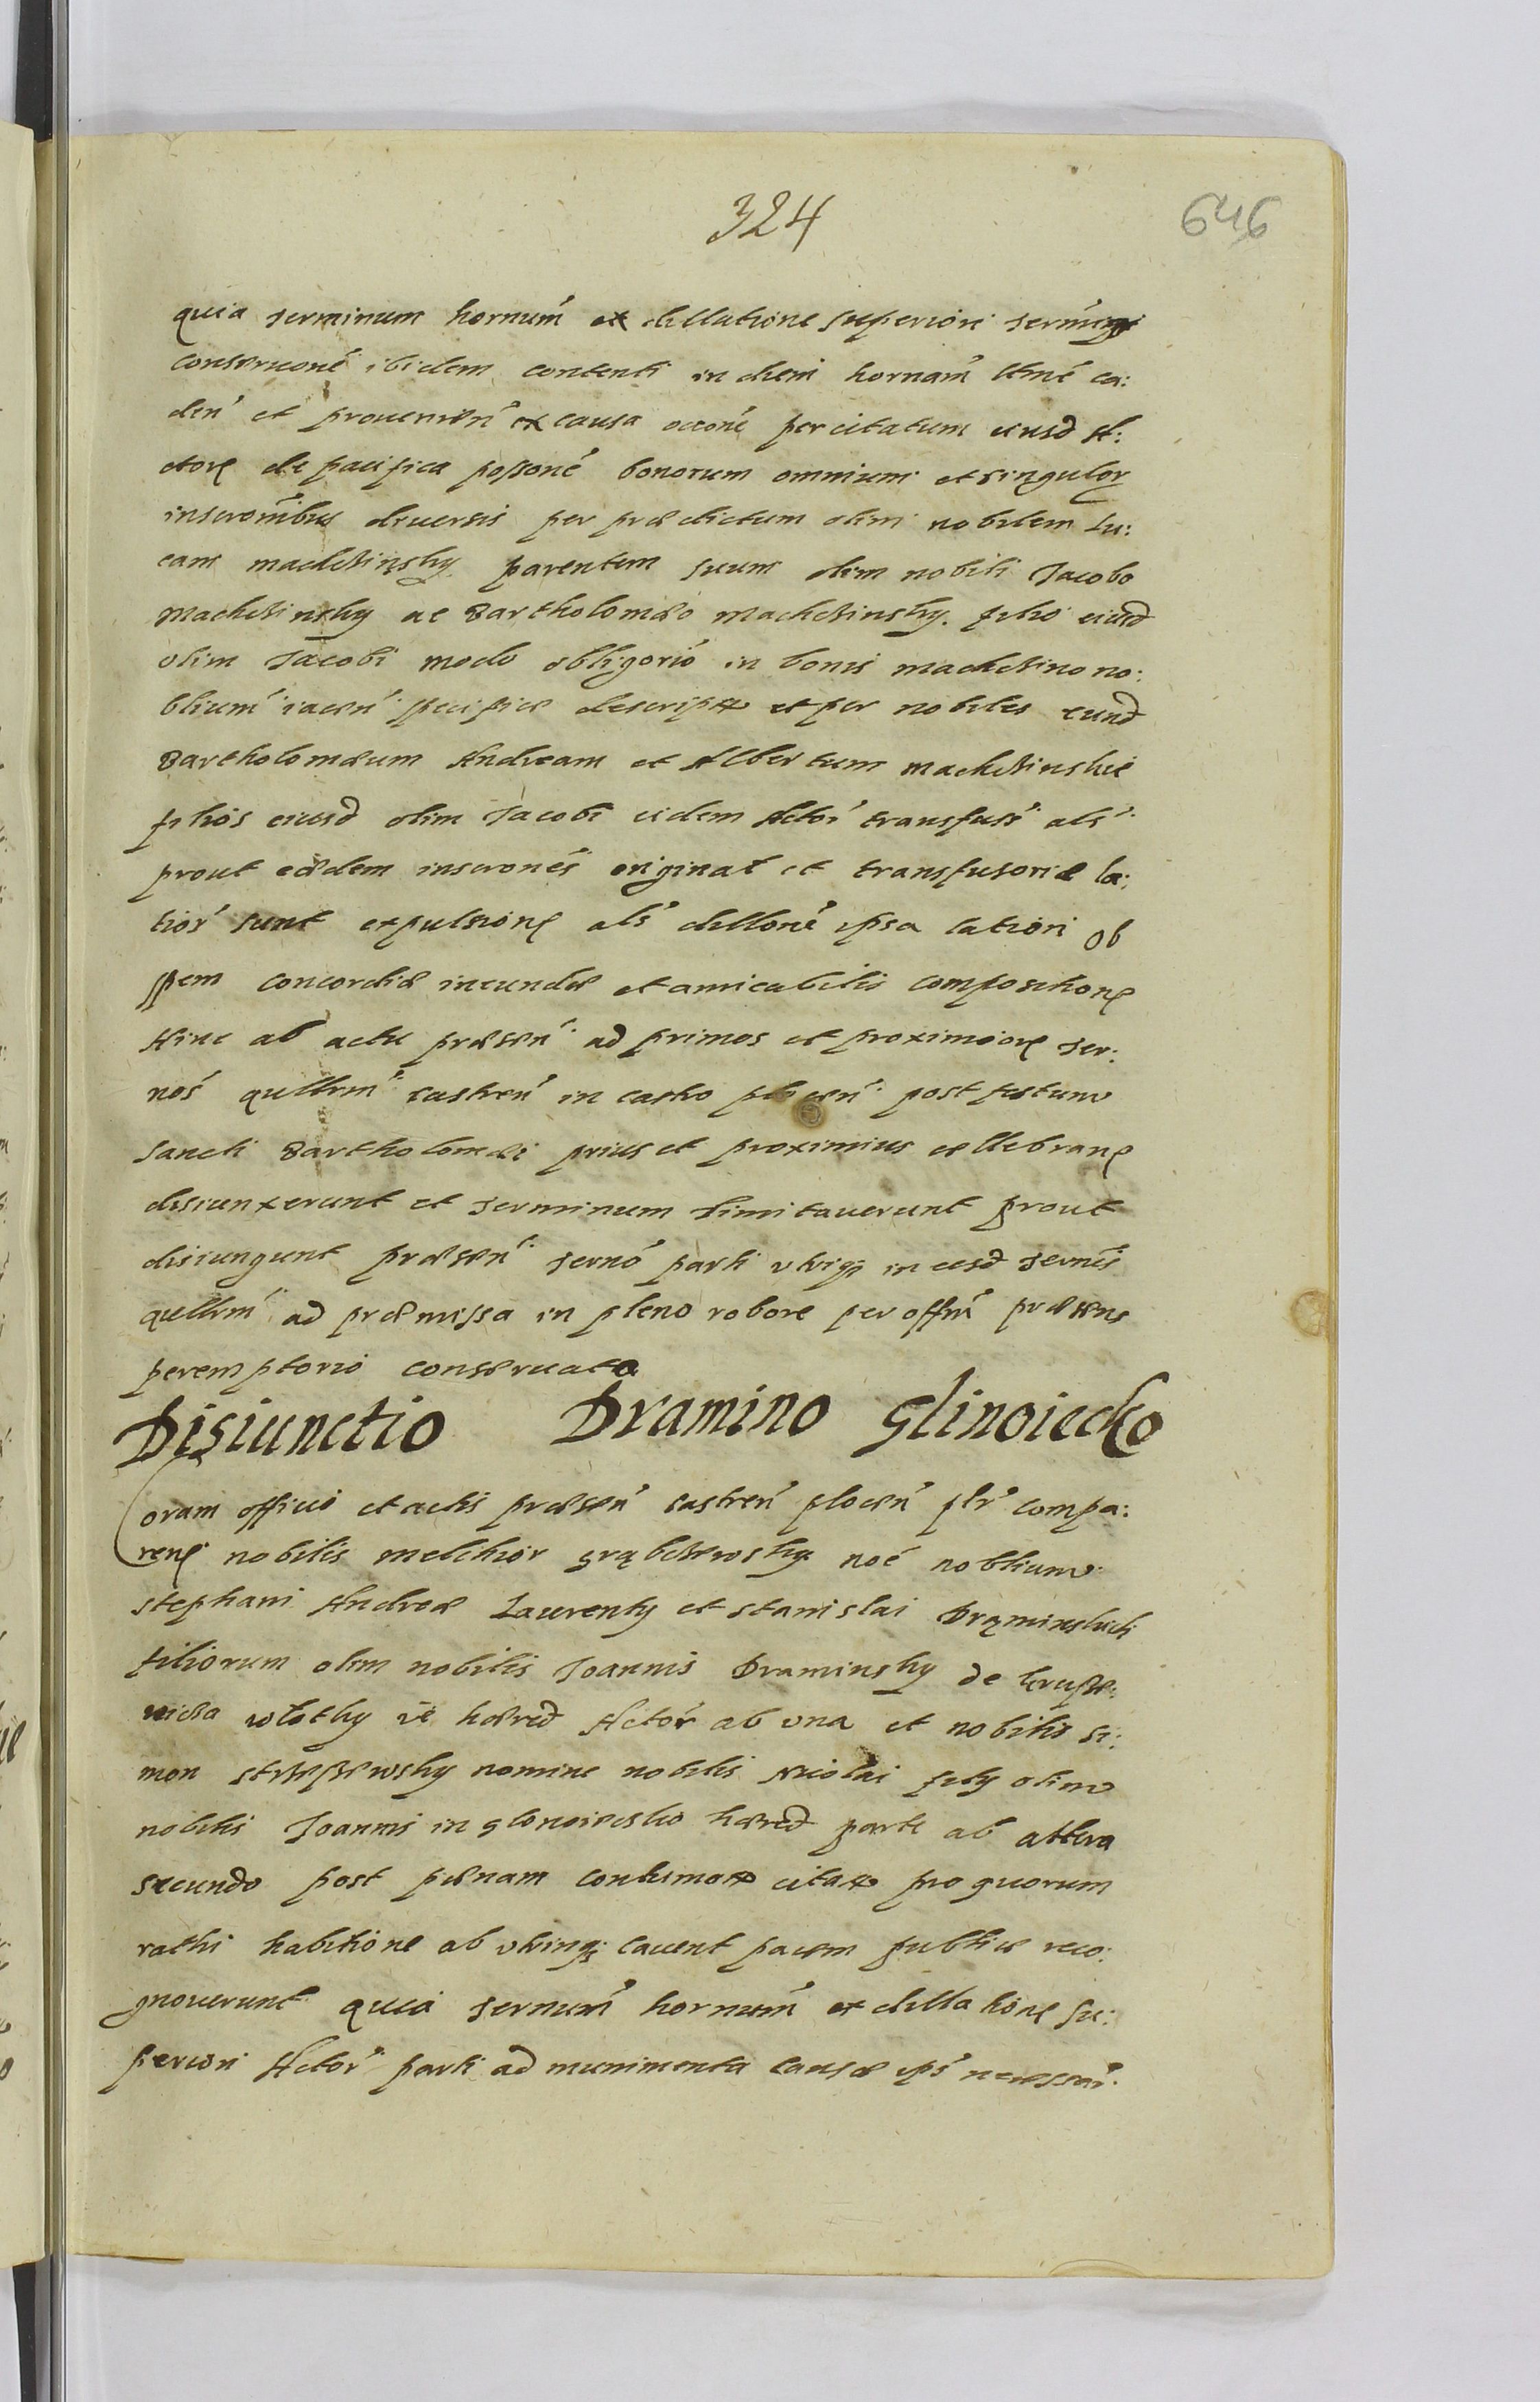 324
646
quia terminum hornum̃ ex dillatione superiori termini
conseruoné ibidem contenti in diem hornam̃ ltiné ca:
den̄ et prouenien̄ ex causa occoné per citatum eiusd A:
ctorę de pacifica possoné bonorum omnium et singulor
inscronibus diuersis per prædictum olim nobilem Lu:
cam machczinsky parentem suum olim nobili Jacobo
Machczinsky ac Bartholomæo Machczinsky filio eiusd
olim Jacobi modo obligorió in bonis machczino no:
blium̃ iacen̄ specifice descripta et per nobiles eund
Bartholomæum Andream et Albertum machczinskie
filiós eiusd olim Jacobi eidem Actor̃ transfus̃ als̃
prout eædem inscronés original et transfusoriæ la:
tior̃ sunt expulsionę als̃ dilloné ipsa latiori ob
spem concordiæ ineundæ et amicabilis compositionę
Hinc ab actu præsen̄ ad primos et proximiorę ter:
nós qullrm̃ castren̄ in castro plocen̄ post festum
Sancti Bartholomæi prius et proximius cellebranę
disiunxerunt et terminum limitauerunt prout
disiungunt præsen̄ ternó parti utriqȝ in eisd ternis
qullrm̃ ad præmissa in pleno robore per offm̃ præsens
peremptorió conseruato
Disiunctio Dramino Glinoiecko
Coram officio et actis præsen̄ castren̄ plocen̄ plr̃ compa:
renę nobilis melchior Grąbczewsky noé noblium
stephani Andreæ Laurenty et stanislai Drąminskich
filiorum olim nobilis Joannis Draminsky de
hæred Actor̃ ab una et nobilis Si:
mon nomine nobilis Nicolai fily olim
nobilis Joannis in glonoiecsko hæred parte ab altera
secundo post pænam contuma citat pro quorum
rathi habitione ab utrinqȝ cauent pacem publice reco:
gnouerunt quia ternum̃ hornum̃ ex dillationę su:
periori Actor̃ parti ad munimenta causæ ips̃ necessar̃